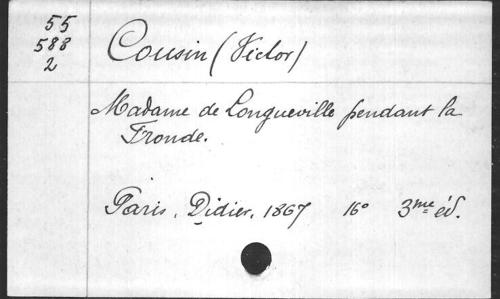 55
588
2
Cousin (Victor)
Madame de Longueville pendant la
Fronde.
Paris, Didier, 1867 16° 3me éd.